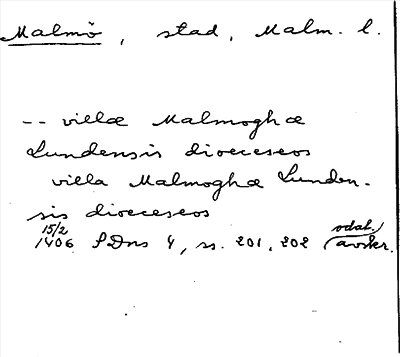 Malmö, stad, Malm. l.
-- villæ Malmoghæ
Lundensis dioeceseos
villa Malmoghæ Lunden-
sis dioeceseos
15/2
1406 SDns 4, ss. 201, 202 (odat. avskr.